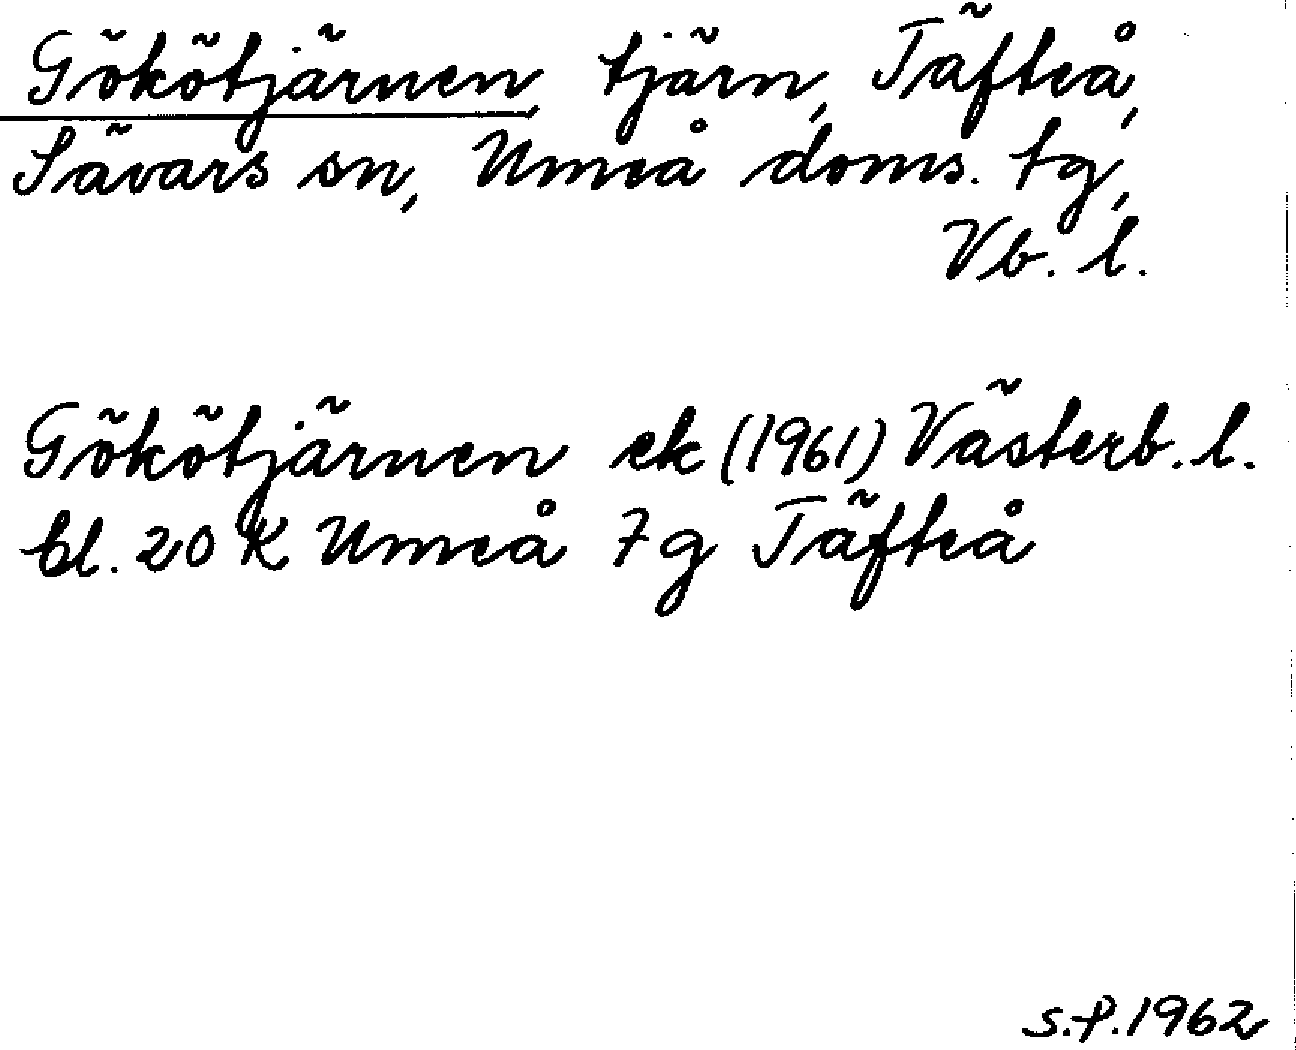 Gökötjärnen, tjärn, Täfteå,
Sävars sn, Umeå doms. tg,
Vb. l.
Gökötjärnen ek (1961) Västerb. l.
bl. 20 K Umeå 7g Täfteå
S.P. 1962